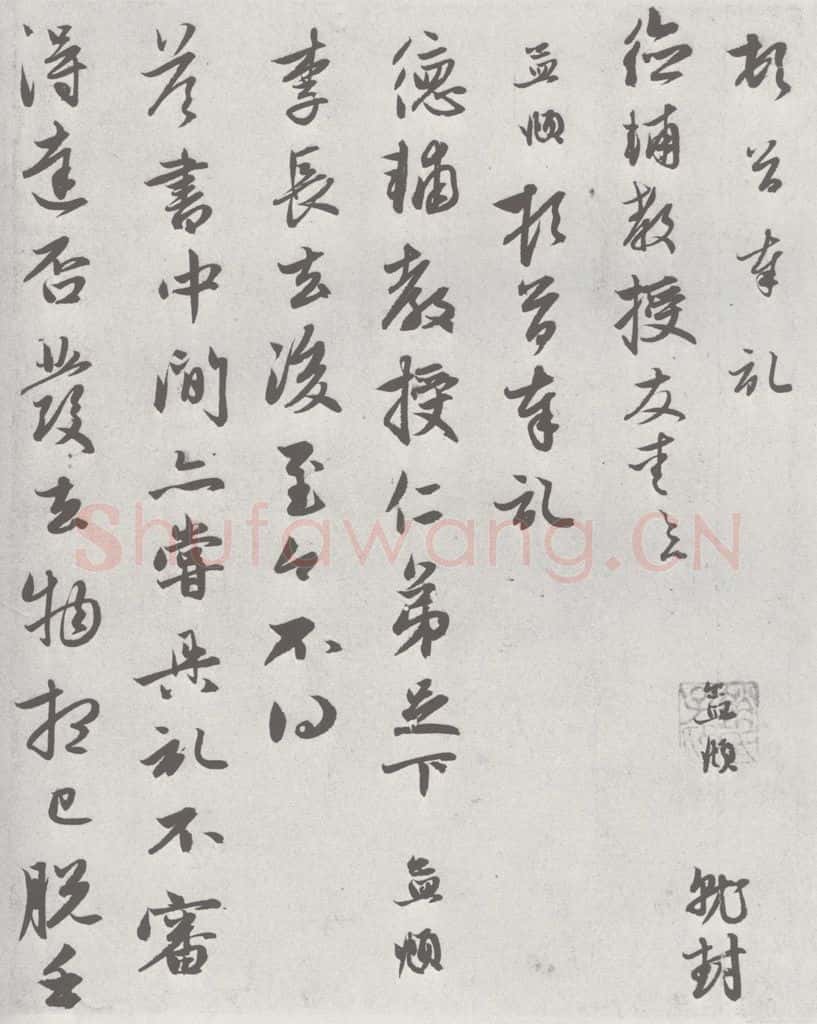 頓首奉記
德輔教授友愛
孟頫 就封
孟頫頓首奉記
德輔教授仁弟足下 孟頫
李長去後至今不得
答書中間亦嘗具記不審
得達否發去物想已脫手
Shufawang.CN